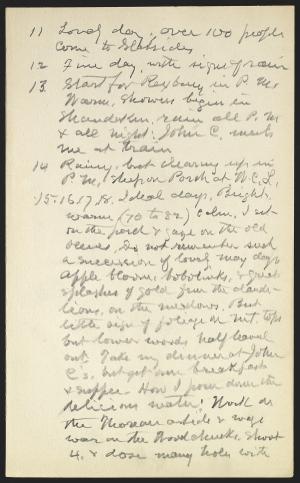 11 Lovely day, over 100 people
come to Slabsides
12 Fine day with signs of rain
13 Start for Roxbury in P.M.
Warm, showers begin in
Shandaken, rain all P.M.
& all night. John C. meets
me at train
14 Rainy, but clearing up in
P.M. Sleep on Porch at W.C.L.
15-16,17,18. Ideal days, Bright,
warm (70 to 82) calm, I sit
on the porch & gaze on the old
scenes, do not remember such
a succession of lovely may days
apple bloom, bobolinks, & great
splashes of gold from the dande-
lions, on the meadows. But
little sign of foliage on mt. tops
but lower woods half leaved
out. Take my dinner at John
C's. but get own breakfasts
& supper. How I pour down the
delicious water! Work on
the Thoreau article & wage
war on the Woodchucks. Shoot
4, & dose many holes with